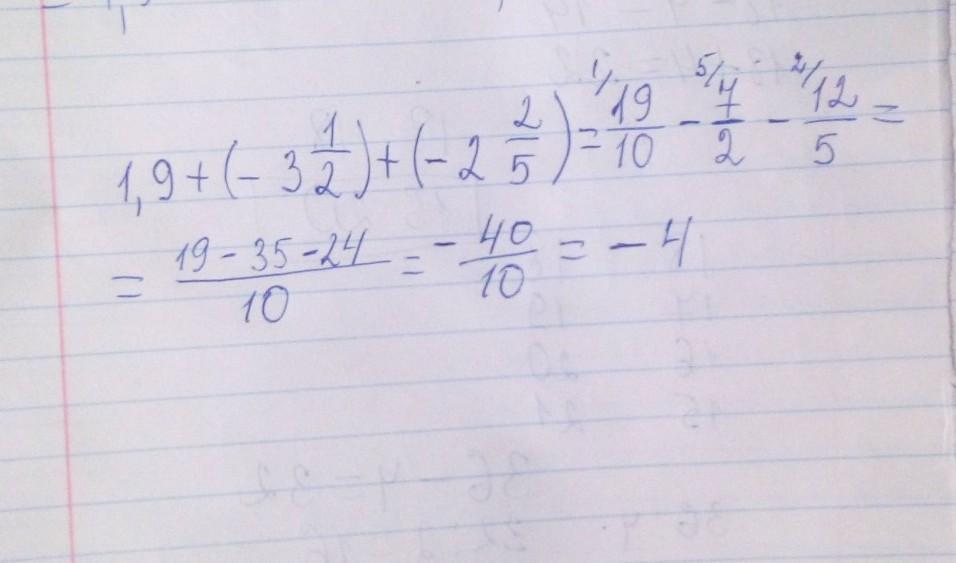 1,9 + (- 3 1/2) + (- 2 2/5) = 1/ 19/10 - 5/ 7/2 - 2/ 12/5 =
= (19 - 35 - 24)/10 = - 40/10 = - 4